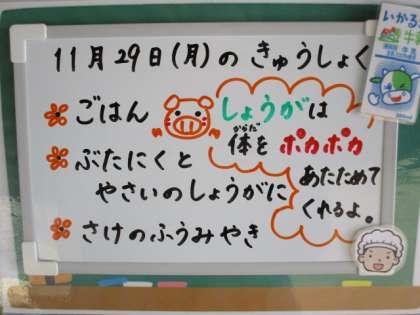 11月29日(月)の きゅうしょく
ごはん
ぶたにくと
やさいのしょうがに
さけのふうみやき
しょうがは
からだ
体を ポカポカ
あたためて
くれるよ。
いかる
牛